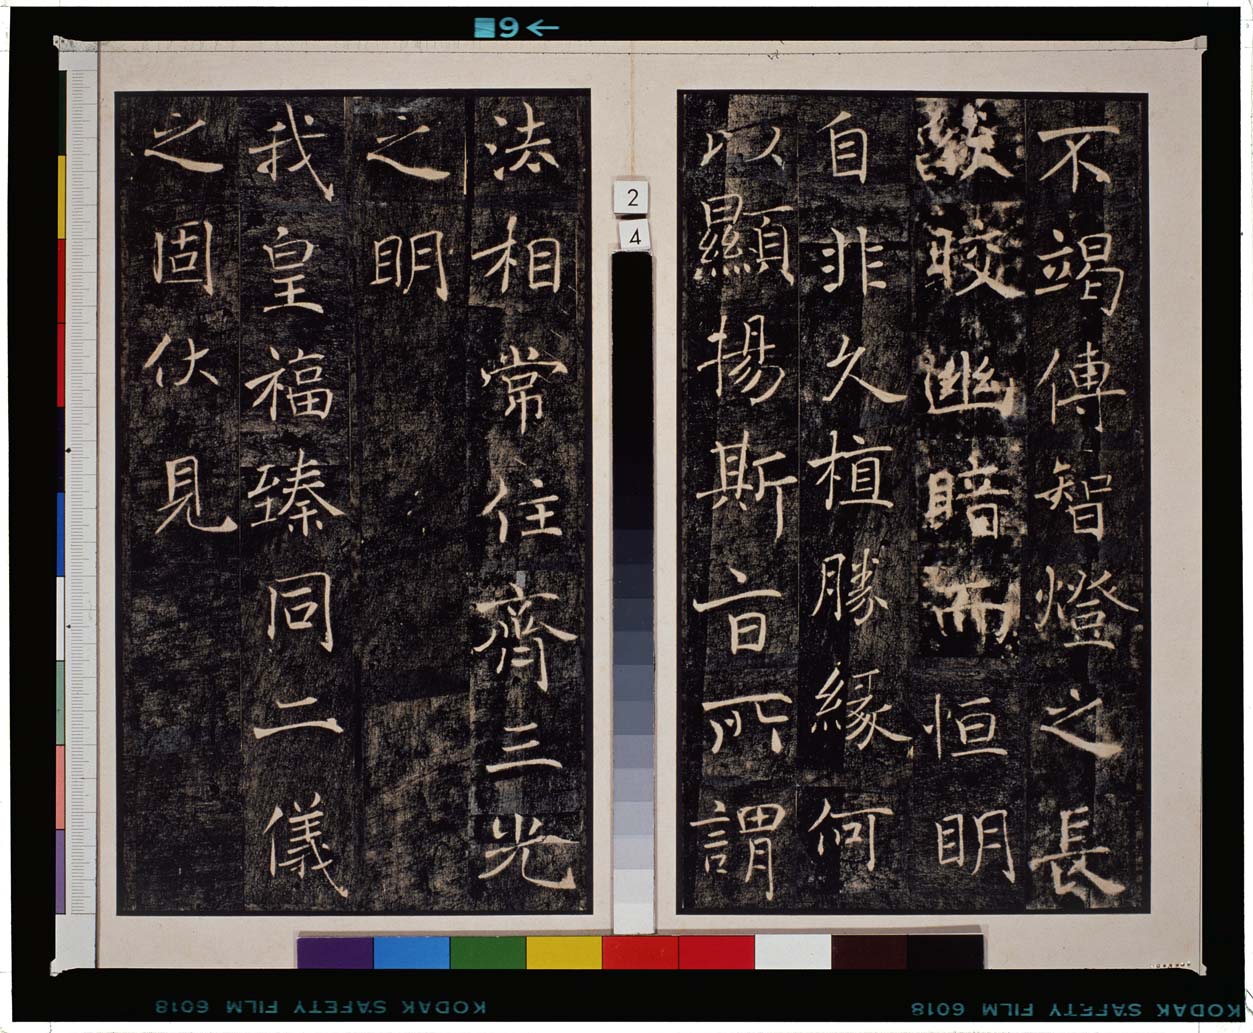 不竭傳智燈之長
燄晈幽暗而恒明
自非久植勝緣何
以顯揚斯旨所謂
法相常住齊三光
之明
我皇福臻同二儀
之固伏見
2
4
KODAK SAFETY FILM 6018
KODAK SAFETY FILM 6018